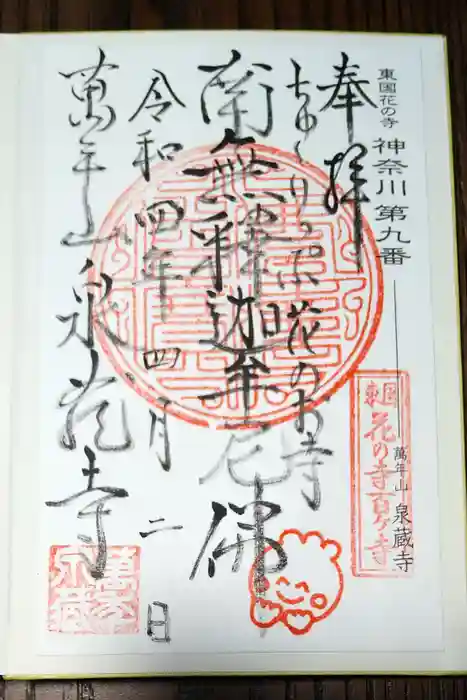 東国花の寺 神奈川 第九番
萬年山 泉蔵寺
東国
花の寺百ヶ寺
奉拝
ちゅーりっぷ花のお寺
南無釈迦牟尼佛
令和四年四月二日
萬年山泉蔵寺